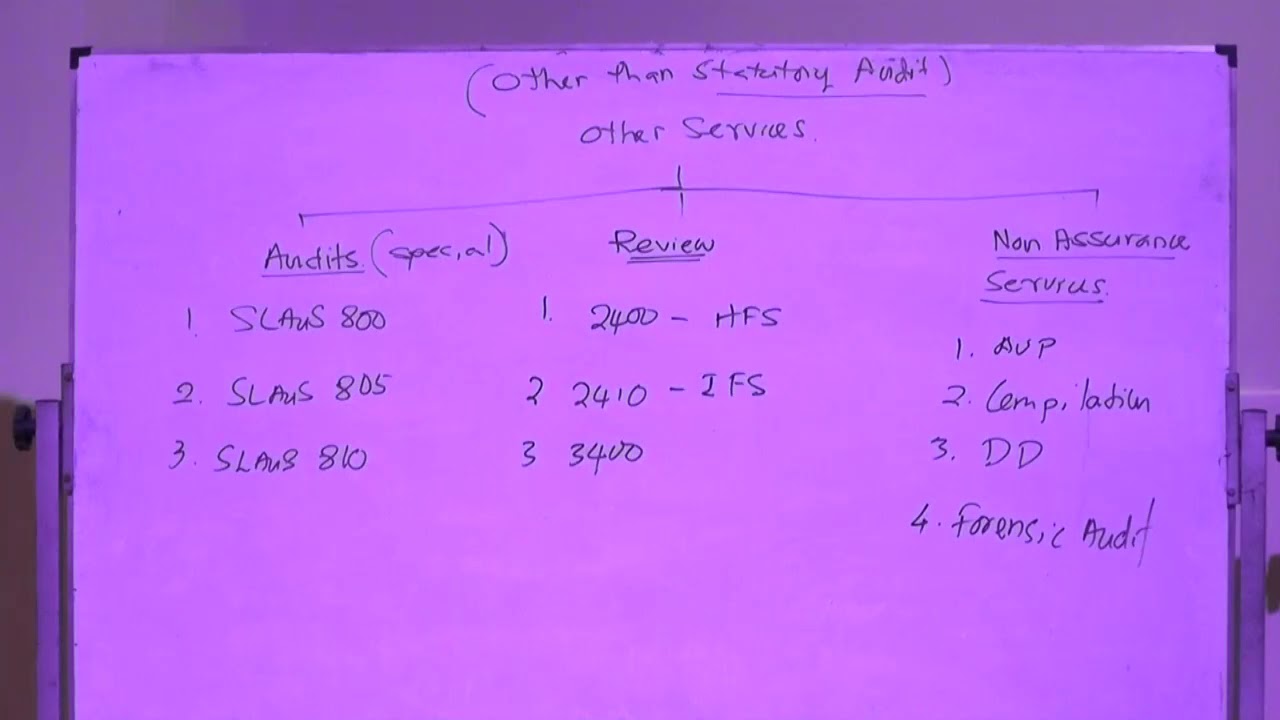 (Other than Statutory Audit)
Other Services.
Audits (special)
1. SLAuS 800
2. SLAuS 805
3. SLAuS 810
Review
1. 2400 - HFS
2 2410 - IFS
3 3400
Non Assurance
Services.
1. AUP
2. Compilation
3. DD
4. Forensic Audit